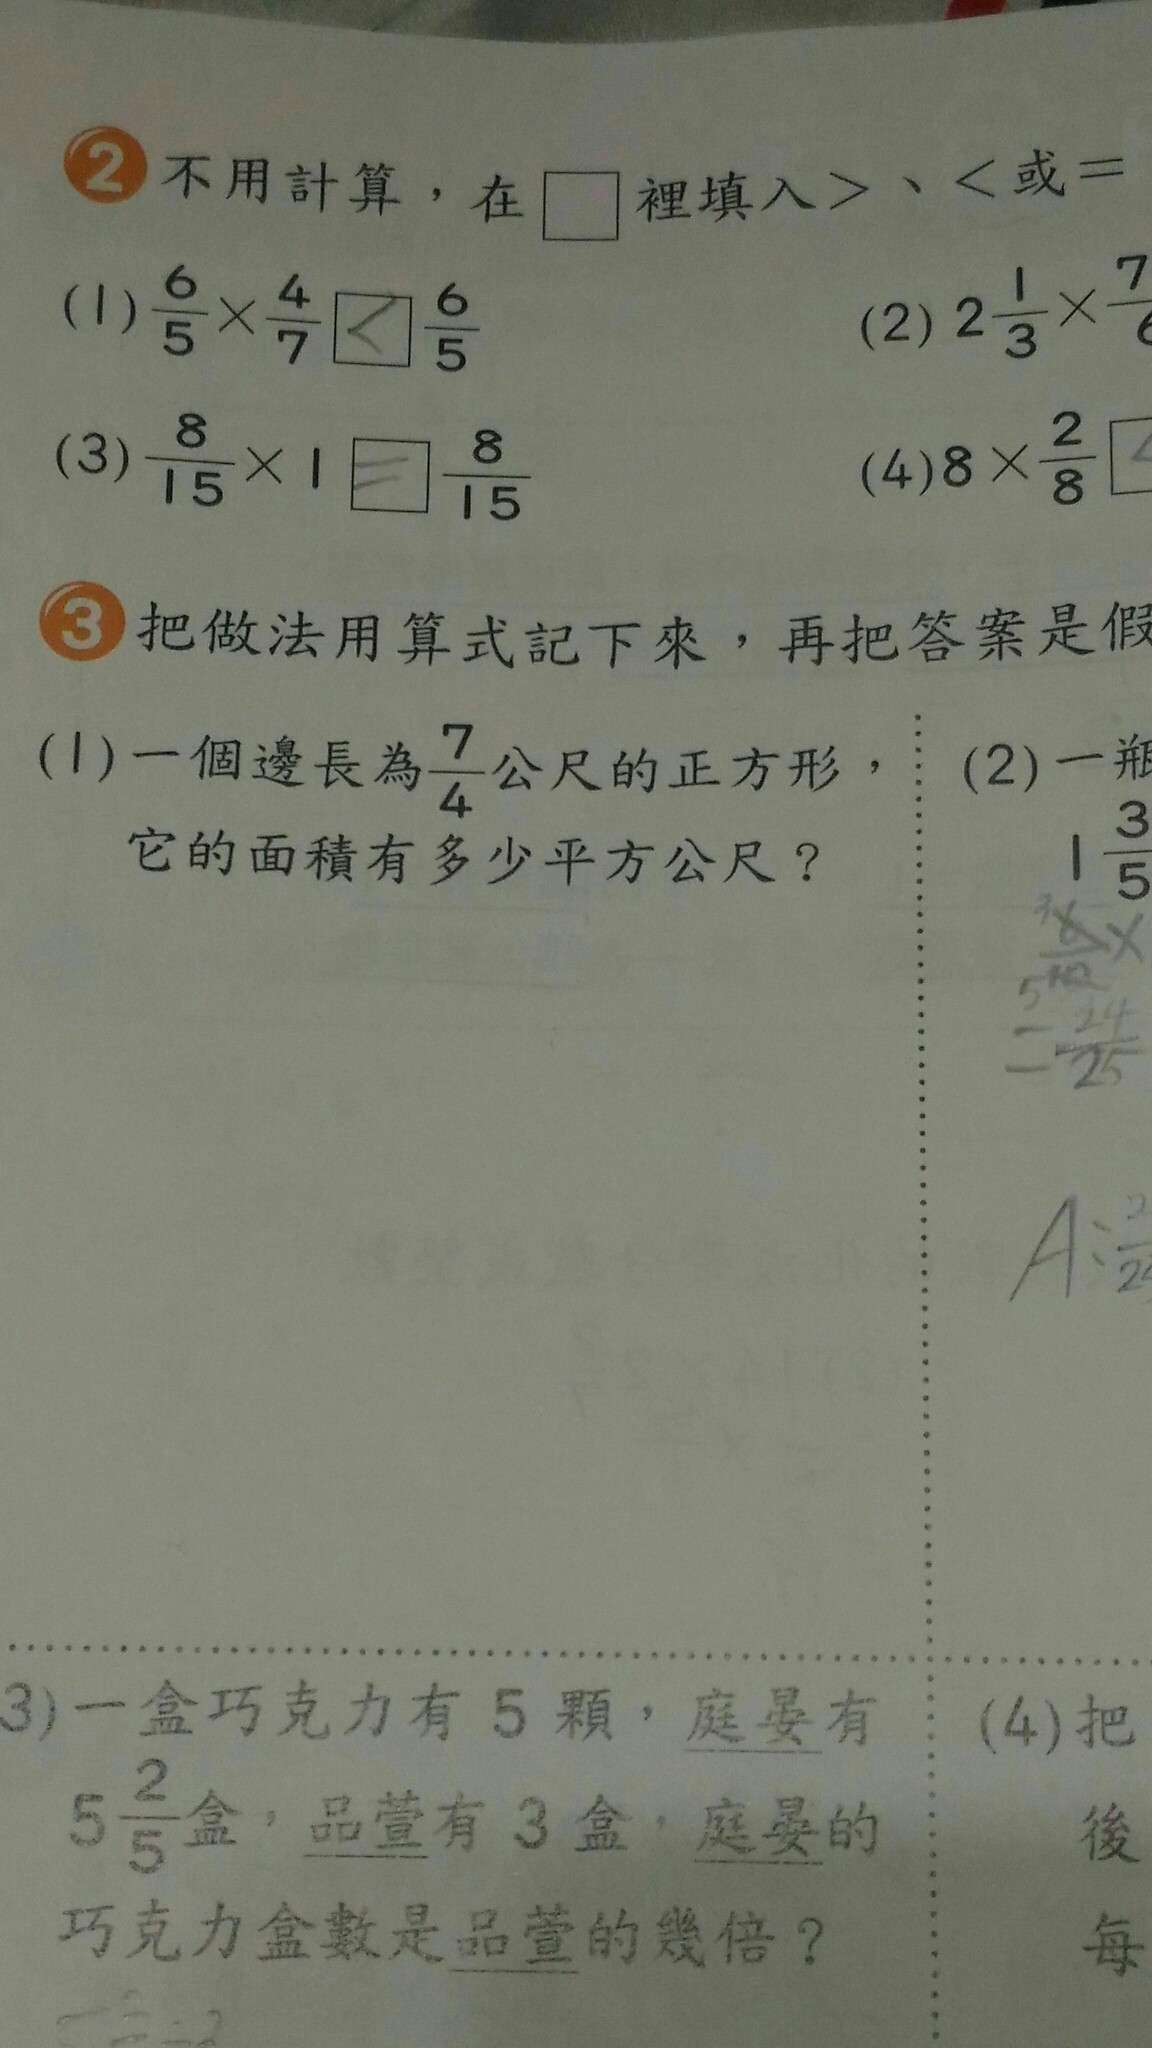 2 不用計算，在□裡填入＞、＜或＝
(1) 6/5 × 4/7 < 6/5
(2) 2 1/3 × 7/6
(3) 8/15 × 1 = 8/15
(4) 8 × 2/8 <
3 把做法用算式記下來，再把答案是假
(1) 一個邊長為 7/4 公尺的正方形，
它的面積有多少平方公尺？
(2) 一瓶
1 3/5
×
= 24/25
A:
3) 一盒巧克力有 5 顆，庭晏有
5 2/5 盒，品萱有 3 盒，庭晏的
巧克力盒數是品萱的幾倍？
(4) 把
後
每